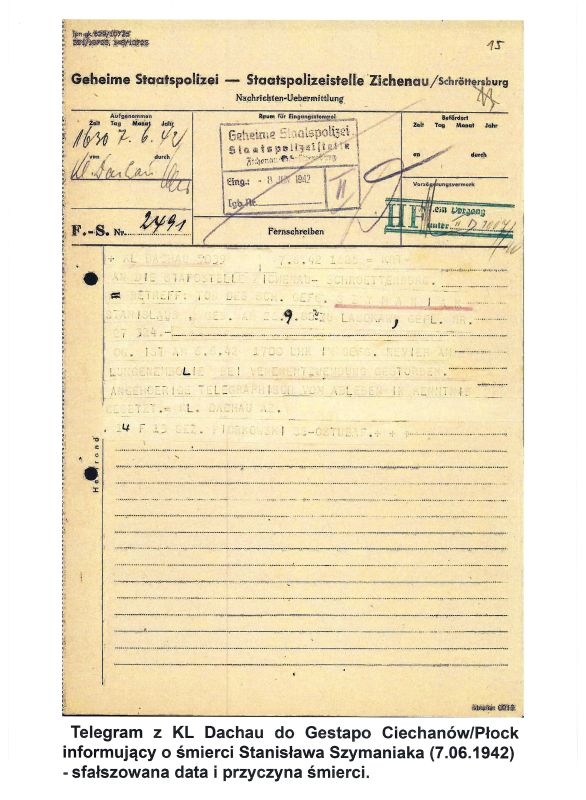 15
Geheime Staatspolizei — Staatspolizeistelle Zichenau/Schröttersburg
Nachrichten-Uebermittlung
Aufgenommen
Zeit Tag Monat Jahr
1630 7. 6. 42
von durch
Kl. Dachau
F.-S. Nr. 2491
Raum für Eingangsstempel
Geheime Staatspolizei
Staatspolizeistelle
Eing.: - 8 JUN 1942
Tgb Nr.
II
Fernschreiben
Befördert
Zeit Tag Monat Jahr
an durch
Verzögerungsvermerk
III ein Vorgang
unter
+ KL DACHAU 5039 7.6.42 1405 =
AN DIE STAPOSTELLE ZICHENAU- SCHROETTERSBURG.
BETREFF: TOD DES SCH. GEFG. SZYMANIAK
STANISLAUS , GEB. AM ZU , GEFL. NR.
27 324.-
OG. IST AM 6.6.42 1700 UHR IM GEFG. REVIER AN
LUNGENEMBOLIE BEI VENENENTZUENDUNG GESTORBEN.
ANGEHOERIGE TELEGRAPHISCH VOM ABLEBEN IN KENNTNIS
GESETZT.= KL. DACHAU AZ.
14 F 13 GEZ. PIORKOWSKI SS-OSTUBAF.+ + +
Heftrand
Telegram z KL Dachau do Gestapo Ciechanów/Płock
informujący o śmierci Stanisława Szymaniaka (7.06.1942)
- sfałszowana data i przyczyna śmierci.